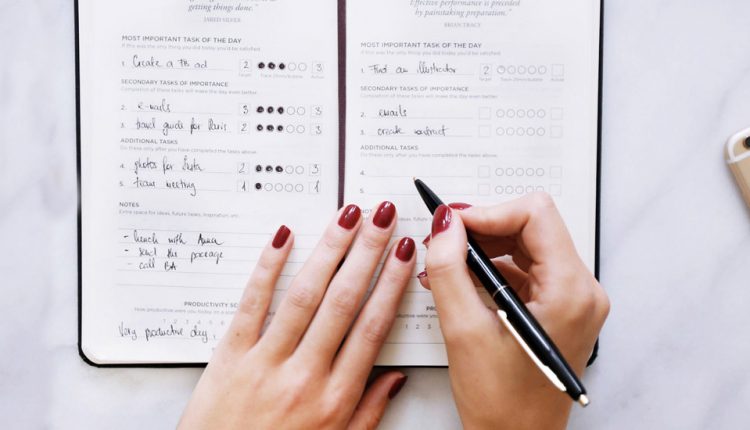 getting things done."
JARED SILVER
MOST IMPORTANT TASK OF THE DAY
If this was the only thing you did today you'd be satisfied.
1. Create a FB ad 2 3
Target Track 25min/bubble Actual
SECONDARY TASKS OF IMPORTANCE
Completion of these tasks will make the day even better.
2. e-mails 3 3
3. travel guide for Paris 2 2
ADDITIONAL TASKS
Do these only after you have completed the tasks above.
4. photos for Insta 2 3
5. team meeting 1 1
NOTES
Extra space for ideas, future tasks, inspiration, etc.
- lunch with
- send the package
- call BA
PRODUCTIVITY
How productive were you today on a
1 2 3 4
Very productive day,
Effective performance is preceded
by painstaking preparation."
BRIAN TRACY
MOST IMPORTANT TASK OF THE DAY
If this was the only thing you did today you'd be satisfied.
1. Find an illustrator 2
Target Track 25min/bubble Actual
SECONDARY TASKS OF IMPORTANCE
Completion of these tasks will make the day even better.
2. emails
3. create contract
ADDITIONAL TASKS
Do these only after you have completed the tasks above.
4.
5.